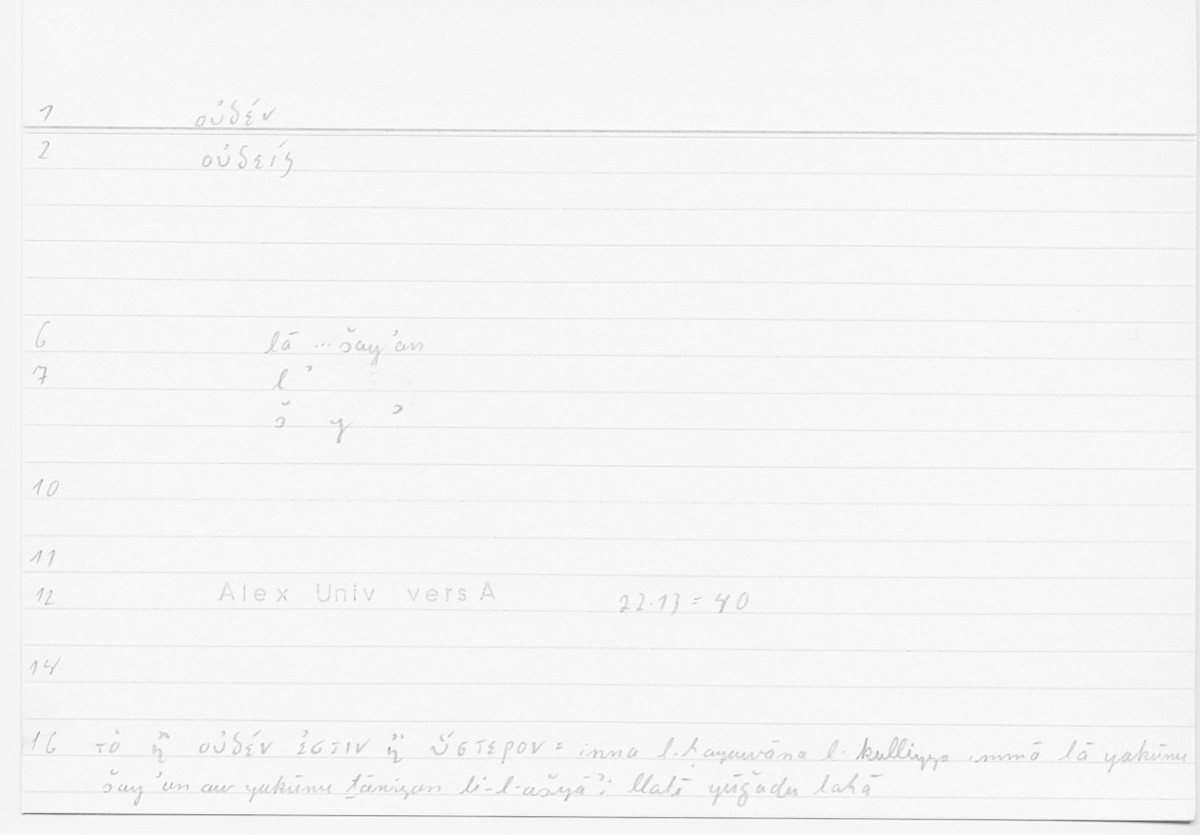 1 οὐδέν
2 οὐδείς
6 lā ... šayʾan
7 l ʾ
š y ʾ
10
11
12 Alex Univ vers A 22.13 = 40
14
16 τὸ ἢ οὐδέν ἐστιν ἢ ὕστερον = inna l-ḥayawāna l-kulliyya immā lā yakūnu
šayʾan aw yakūnu ṯāniyan li-l-ašyāʾi llatī yūǧadu lahā